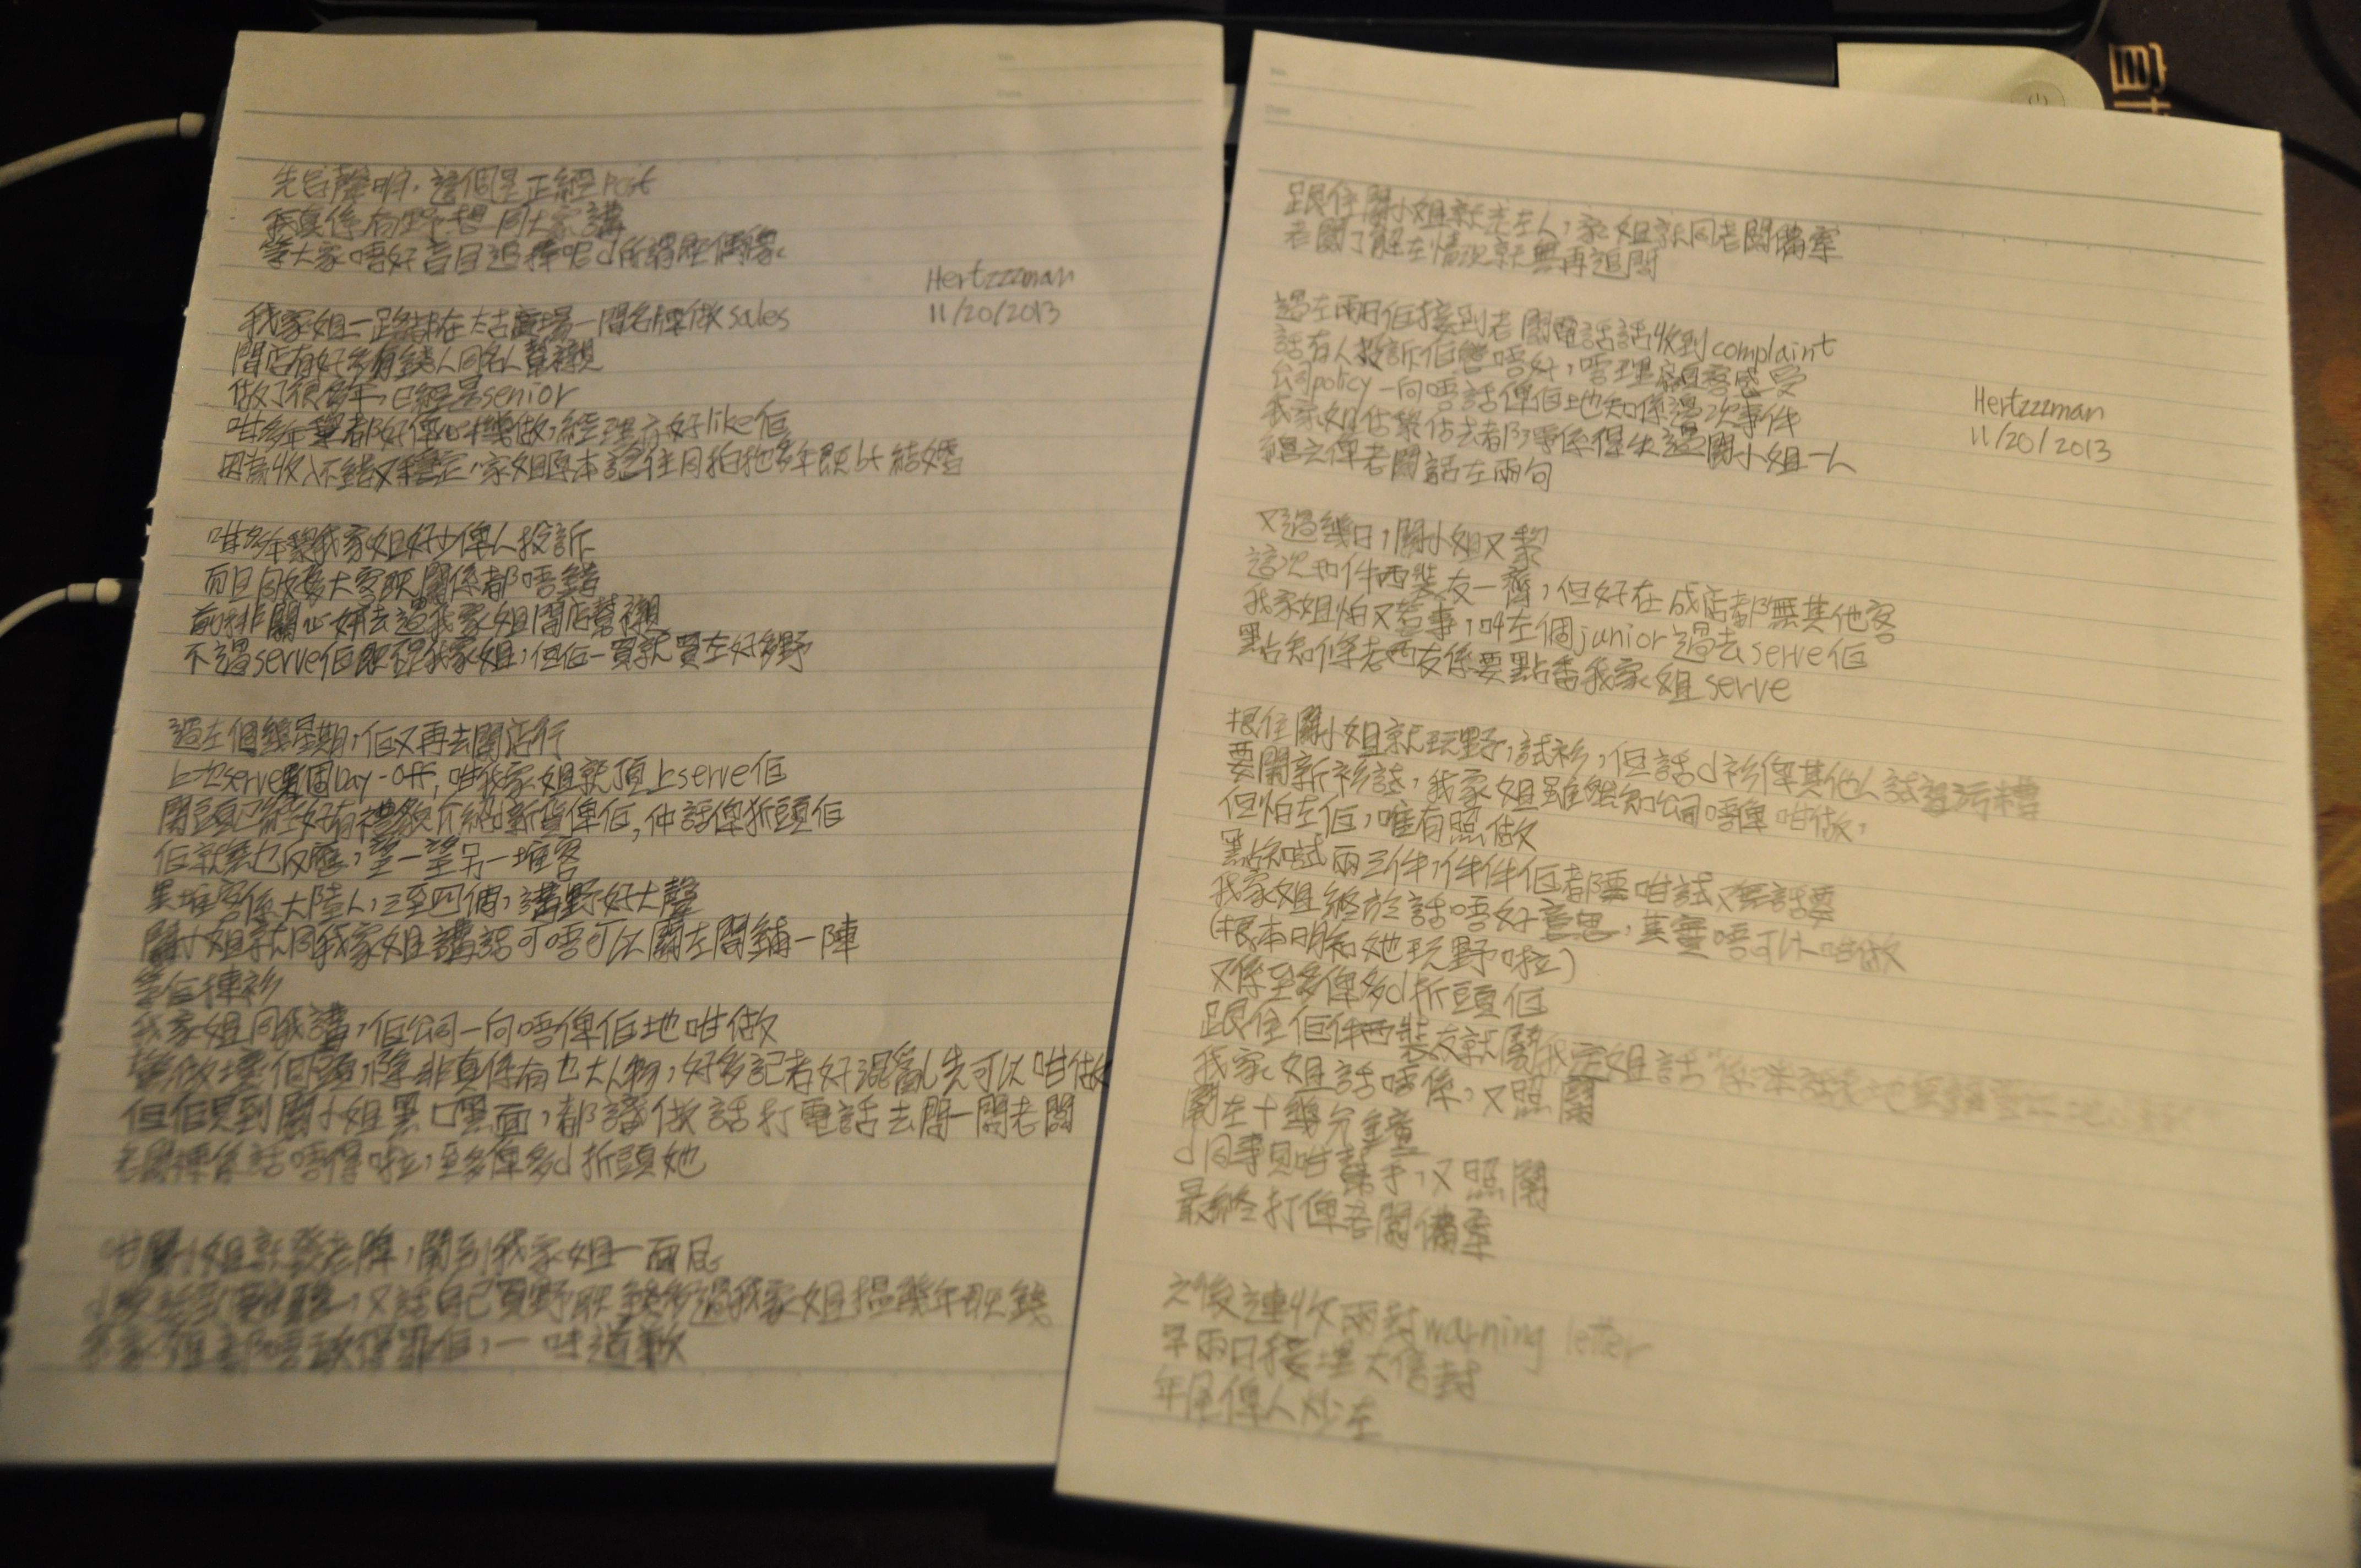 先旨聲明，這個是正經post
我真係有野想同大家講
等大家唔好盲目追捧呢d所謂既偶像
Hertzzzman
11/20/2013
我家姐一路都在太古廣場一間名牌做sales
間店有好多有錢人同名人幫襯
做了很多年，已經是senior
咁多年黎都好俾心機做，經理亦好like佢
因為收入不錯又穩定，家姐原本諗住同拍拖多年既bf結婚
咁多年黎我家姐好少俾人投訴
而且同好多大客既關係都唔錯
前排關心妍去過我家姐間店幫襯
不過serve佢既唔係我家姐，但佢一買就買左好多野
過左個幾星期，佢又再去間店行
上次serve果個Day-off，咁我家姐就頂上serve佢
開頭已經好有禮貌介紹新貨俾佢，仲話俾折頭佢
佢就無乜反應，望一望另一堆客
果堆客係大陸人，三至四個，講野好大聲
關小姐就同我家姐講話可唔可以關左間鋪一陣
等佢揀衫
我家姐同我講，佢公司一向唔俾佢地咁做
除非真係有乜大人物，好多記者好混亂先可以咁做
但佢見到關小姐黑口黑面，都話打電話去問一問老闆
老闆話唔得啦，至多俾多d折頭她
咁關小姐就發老脾，鬧到我家姐一面屁
又話自己買野既錢多過我家姐搵幾年既錢
家姐都唔敢得罪佢，一味道歉
跟住關小姐就走左人，家姐就同老闆備案
老闆了解左情況就無再追問
過左兩日佢接到老闆電話話收到complaint
話有人投訴佢態度唔好，唔理顧客感受
公司policy一向唔話俾佢地知係邊次事件
我家姐估黎估去都淨係得失過關小姐一人
總之俾老闆話左兩句
Hertzzzman
11/20/2013
又過幾日，關小姐又黎
這次和件西裝友一齊，但好在成店都無其他客
我家姐怕又惹事，叫左個junior過去serve佢
點知條老西友係要點番我家姐serve
跟住關小姐就玩野，試衫，但話d衫俾其他人試過污糟
要開新衫試，我家姐雖然知公司唔俾咁做，
但怕左佢，唯有照做
點知試兩三件，件件佢都要咁試又無話要
我家姐終於話唔好意思，其實唔可以咁做
(根本明知她玩野啦)
又係至多俾多d折頭佢
跟住佢件西裝友就鬧我家姐話
我家姐話唔係，又照鬧
鬧左十幾分鐘
d同事見咁幫手，又照鬧
最終打俾老闆備案
之後連收兩封warning letter
早兩日接埋大信封
年尾俾人炒左